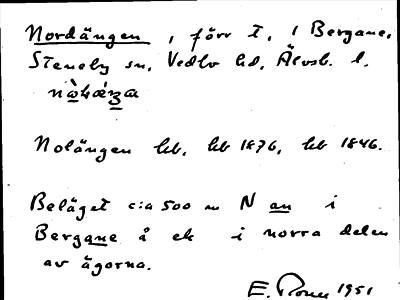 Nordängen, förr t. 1 Bergane,
Steneby sn, Vedbo hd, Älvsb. l.
Nolängen hb. hb 1876, hb 1846.
Beläget c:a 500 m N an i
Bergane å ek i norra delen
av ägorna.
E. 1951